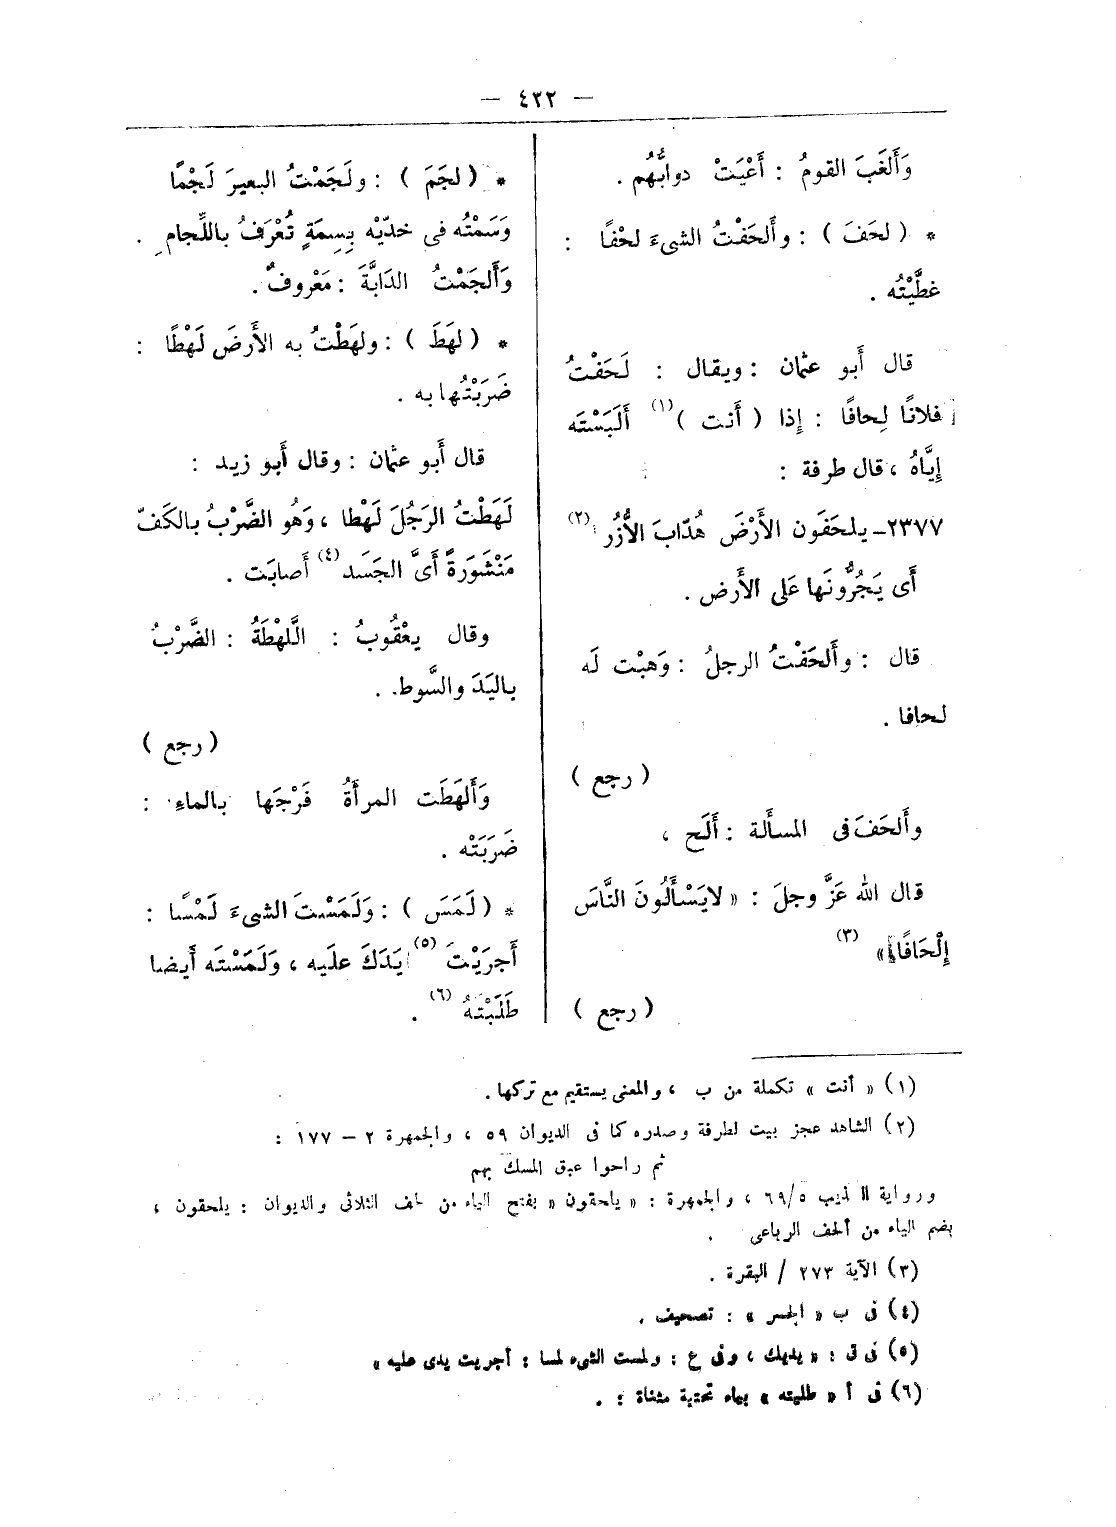 — ٤٣٢ —
وَأَلغَبَ القومُ : أَعْيَتْ دوابُّهُم .
* ( لحَفَ ) : وأَلحَفْتُ الشىءَ لحْفًا :
غطَّيْتُه .
قال أَبو عثمان : ويقال : لَحَفْتُ
فلانًا لِحافًا : إِذا ( أَنت )(١) أَلبَسْتَه
إِيَّاهُ ، قال طرفة :
٢٣٧٧ــ يلحَفَون الأَرْضَ هُدّابَ الأُزُر (٢)
أَى يَجُرُّونَها عَلى الأَرض .
قال : وأَلحَفْتُ الرجلُ : وَهبْت لَه
لحافا .
( رجع )
وأَلحَفَ فى المسأَلة : أَلَح ،
قال الله عَزَّ وجلَ : « لايَسْأَلُونَ النَّاسَ
إِلْحَافًا» (٣)
( رجع )
* ( لجَمَ ) : ولَجَمْتُ البعيرَ لَجْمًا
وَسَمْتُه فى خدّيْه بِسِمَةٍ تُعْرَفُ باللِّجامِ .
وَأَلجَمْتُ الدَابَّةَ : مَعْروفٌ .
* ( لهَطَ ) : ولهَطْتُ به الأَرضَ لَهْطًا :
ضَرَبْتُها به .
قال أَبو عثمان : وقال أَبو زيد :
لَهَطْتُ الرَجُلَ لَهْطا ، وَهُو الضَّرْبُ بالكَفّ
مَنْشَورَةً أَىَّ الجَسَد (٤) أَصابَت .
وقال يعْقُوبُ : الَّلهْطَةُ : الضَّرْبُ
باليَدَ والسَّوط .
( رجع )
وَأَلهَطَت المرأَةُ فَرْجَها بالماءِ :
ضَرَبَتْه .
* ( لَمَسَ ) : وَلَمَسْتَ الشىءَ لَمْسًا :
أَجرَيْتَ (٥) يَدَكَ علَيه ، وَلَمَسْتَه أَيضا
طَلَبْتَهُ (٦) .
(١) « أنت » تكملة من ب ، والمعنى يستقيم مع تركها .
(٢) الشاهد عجز بيت لطرفة وصدره كما فى الديوان ٥٩ ، والجمهرة ٢ – ١٧٧ :
ثم راحوا عبق المسك بهم
ورواية ذيب ٦٩/٥ ، والجمهرة : « يلحقون » بفتح الياء من لحف الثلاثى والديوان : يلحقون ،
بضم الياء من ألحف الرباعى .
(٣) الآية ٢٧٣ / البقرة .
(٤) فى ب « الجسر » : تصحيف .
(٥) فى ق : « يديك ، وفى ع : ولمست الشىء لمسا : أجريت يدى عليه »
(٦) فى أ « طليته » بياء تحتية مثناة : .